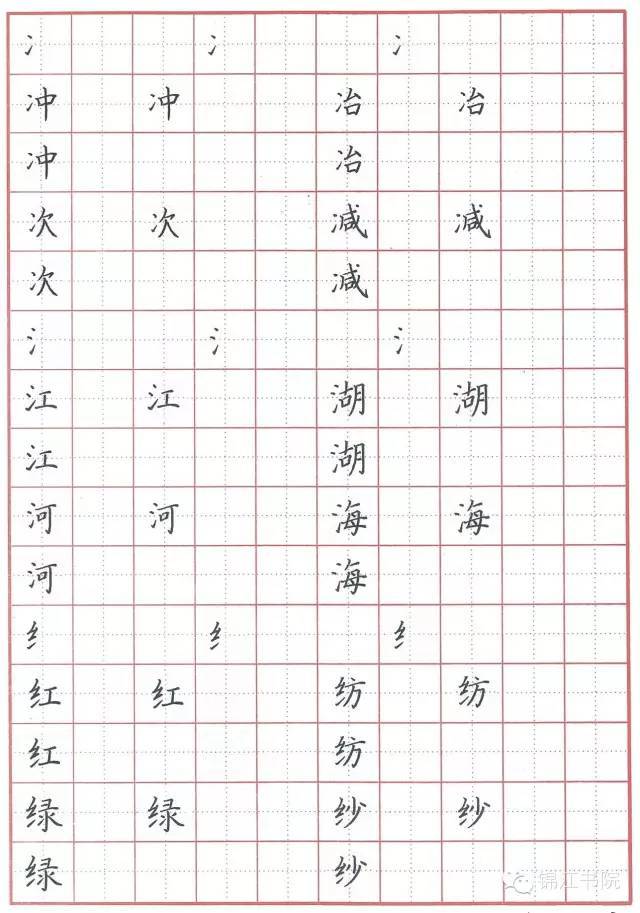 冫 冫 冫
冲 冲 冶 冶
冲 冶
次 次 减 减
次 减
氵 氵 氵
江 江 湖 湖
江 湖
河 河 海 海
河 海
纟 纟 纟
红 红 纺 纺
红 纺
绿 绿 纱 纱
绿 纱
锦江书院